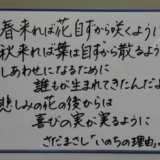 春来れば花自ずから咲くように
秋来れば葉は自ずから散るように
しあわせになるために
誰もが生まれてきたんだよ
悲しみの花の後からは
喜びの実が実るように
さだまさし「いのちの理由」